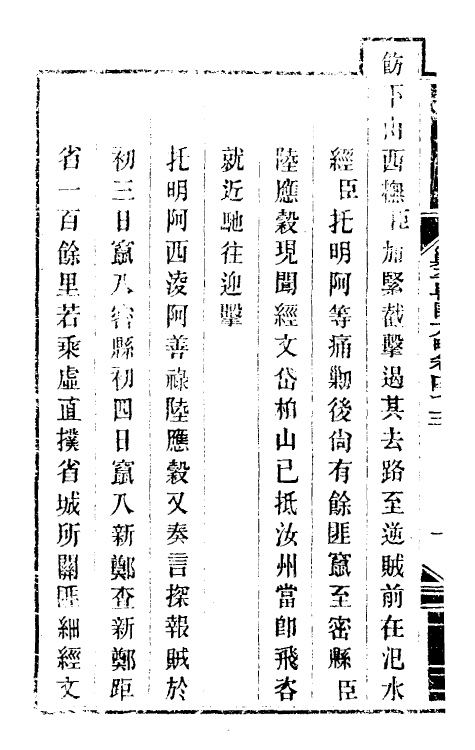 飭下山西撫臣加緊截擊遏其去路至逆賊前在汜水
經臣托明阿等痛剿後尙有餘匪竄至密縣臣
陸應穀現聞經文岱柏山已抵汝州當卽飛咨
就近馳往迎擊
托明阿西凌阿善祿陸應穀又奏言探報賊於
初三日竄入密縣初四日竄入新鄭查新鄭距
省一百餘里若乘虛直撲省城所關匪細經文